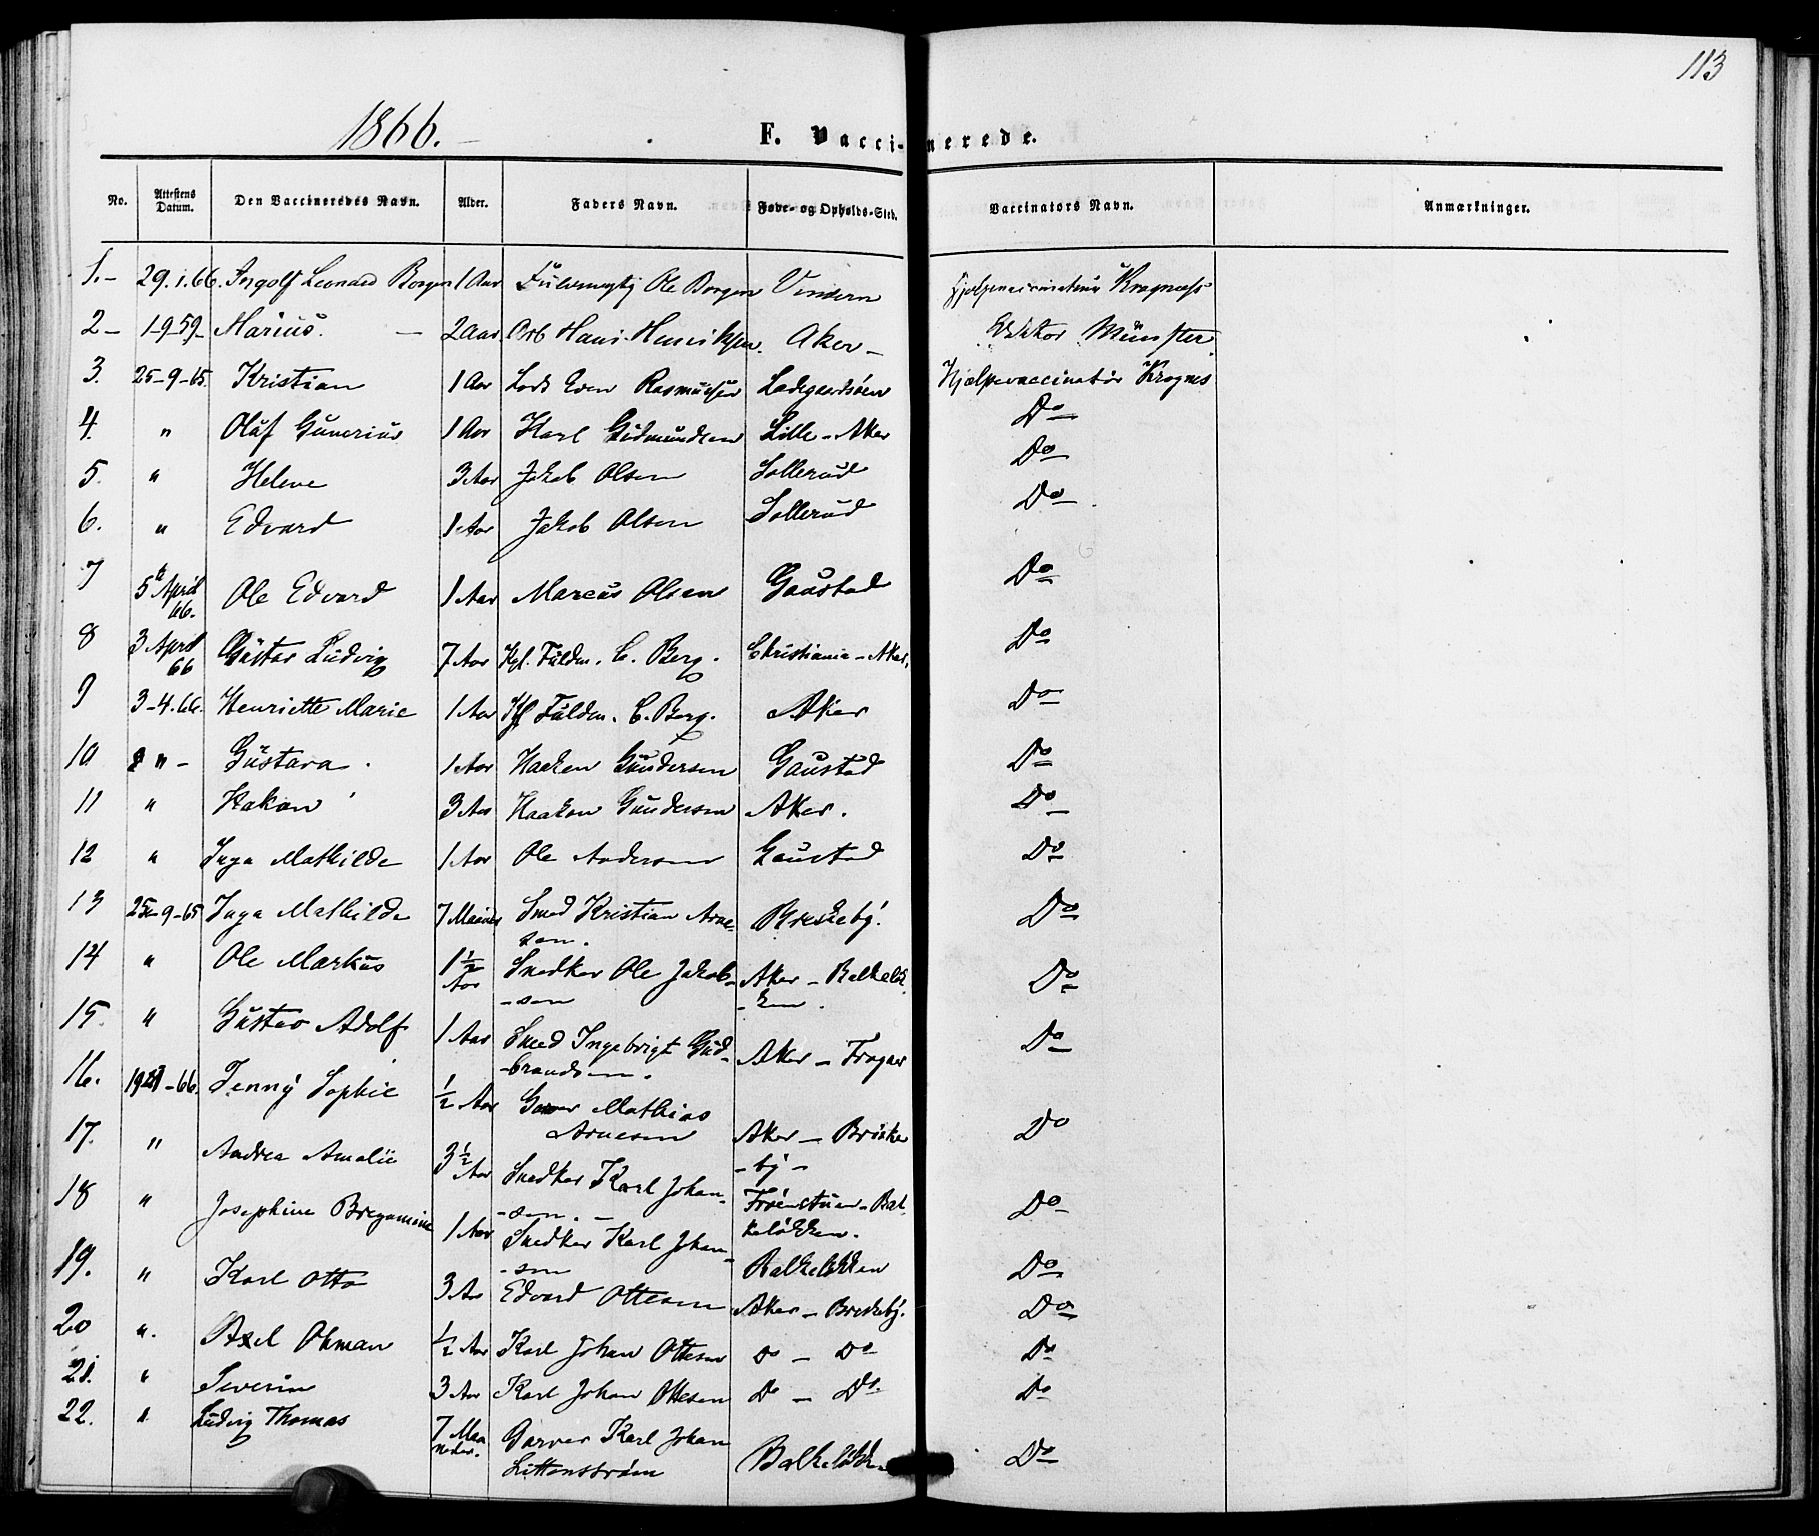 113
1866.
F. Vaccinerede.
No. Attestens Datum. Den Vaccineredes Navn. Alder. Faders Navn. Føde- og Opholds-Sted. Vaccinators Navn. Anmærkninger.
1. 29.1.66. Ingolf Leonard Borgen 1 Aar Fuldmægtig Ole Borgen Vindern Hjelpevaccinatør Krogness
2 1-9-59 Marius. 2 Aar Arb Hans Henriksen. Aker Doktor Münster
3. 25-9-65. Kristian 1 Aar Lods Even Rasmussen Ladegaardsøen Hjelpevaccinatør Krognes
4. " Oluf Gunerius 1 Aar Karl Gudmundsen Lille-Aker Do
5. " Helene 3 Aar Jakob Olsen Sollerud Do
6. " Edvard 1 Aar Jakob Olsen Sollerud Do
7 5te April 66. Ole Edvard 1 Aar Marcus Olsen Gaustad Do
8 3 April 66 Gustav Ludvig 7 Aar Kgl. Fuldm. C. Berg. Christiania-Aker. Do
9 3-4.66. Henriette Marie 1 Aar Kgl Fuldm. C. Berg. Aker Do
10 " - Gustava. 1 Aar Haaken Gundersen Gaustad Do
11 " Hakon 3 Aar Haakon Gundersen Aker. Do
12 " Inga Mathilde 1 Aar Ole Andersen Gaustad Do
13 25-9-65 Inga Mathilde 7 Maaner Smed Kristian Arne-
sen. Breskeby. Do
14 " Ole Markus 1 1/2 Aar Snedker Ole Jakob-
-sen Aker - Balkeløk-
-ken. Do
15. " Gustav Adolf 1 Aar Smed Ingebrigt Gud-
-brandsen. Aker - Frogner Do
16. -66. Jenny Sophie 1/2 Aar Garver Mathias
Arnesen Aker - Briske
-by- Do
17. " Andrea Amalie 3 1/2 Aar Snedker Karl Johan-
-sen. - Frøenstuen-Bal-
keløkken. Do
18 " Josephine Bregamine 1 Aar Snedker Karl Johan-
-sen Balkeløkken Do
19. " Karl Otto 3 Aar Edvard Ottesen Aker - Breskeby. Do
20 ". Axel Ohman 1/2 Aar Karl Johan Ottesen Do - Do Do
21. " Severin 3 Aar Karl Johan Ottesen Do - Do. Do
22. " Ludvig Thomas 7 Maa
neder. Garver Karl Johan
Littonstrøm Balkeløkken Do